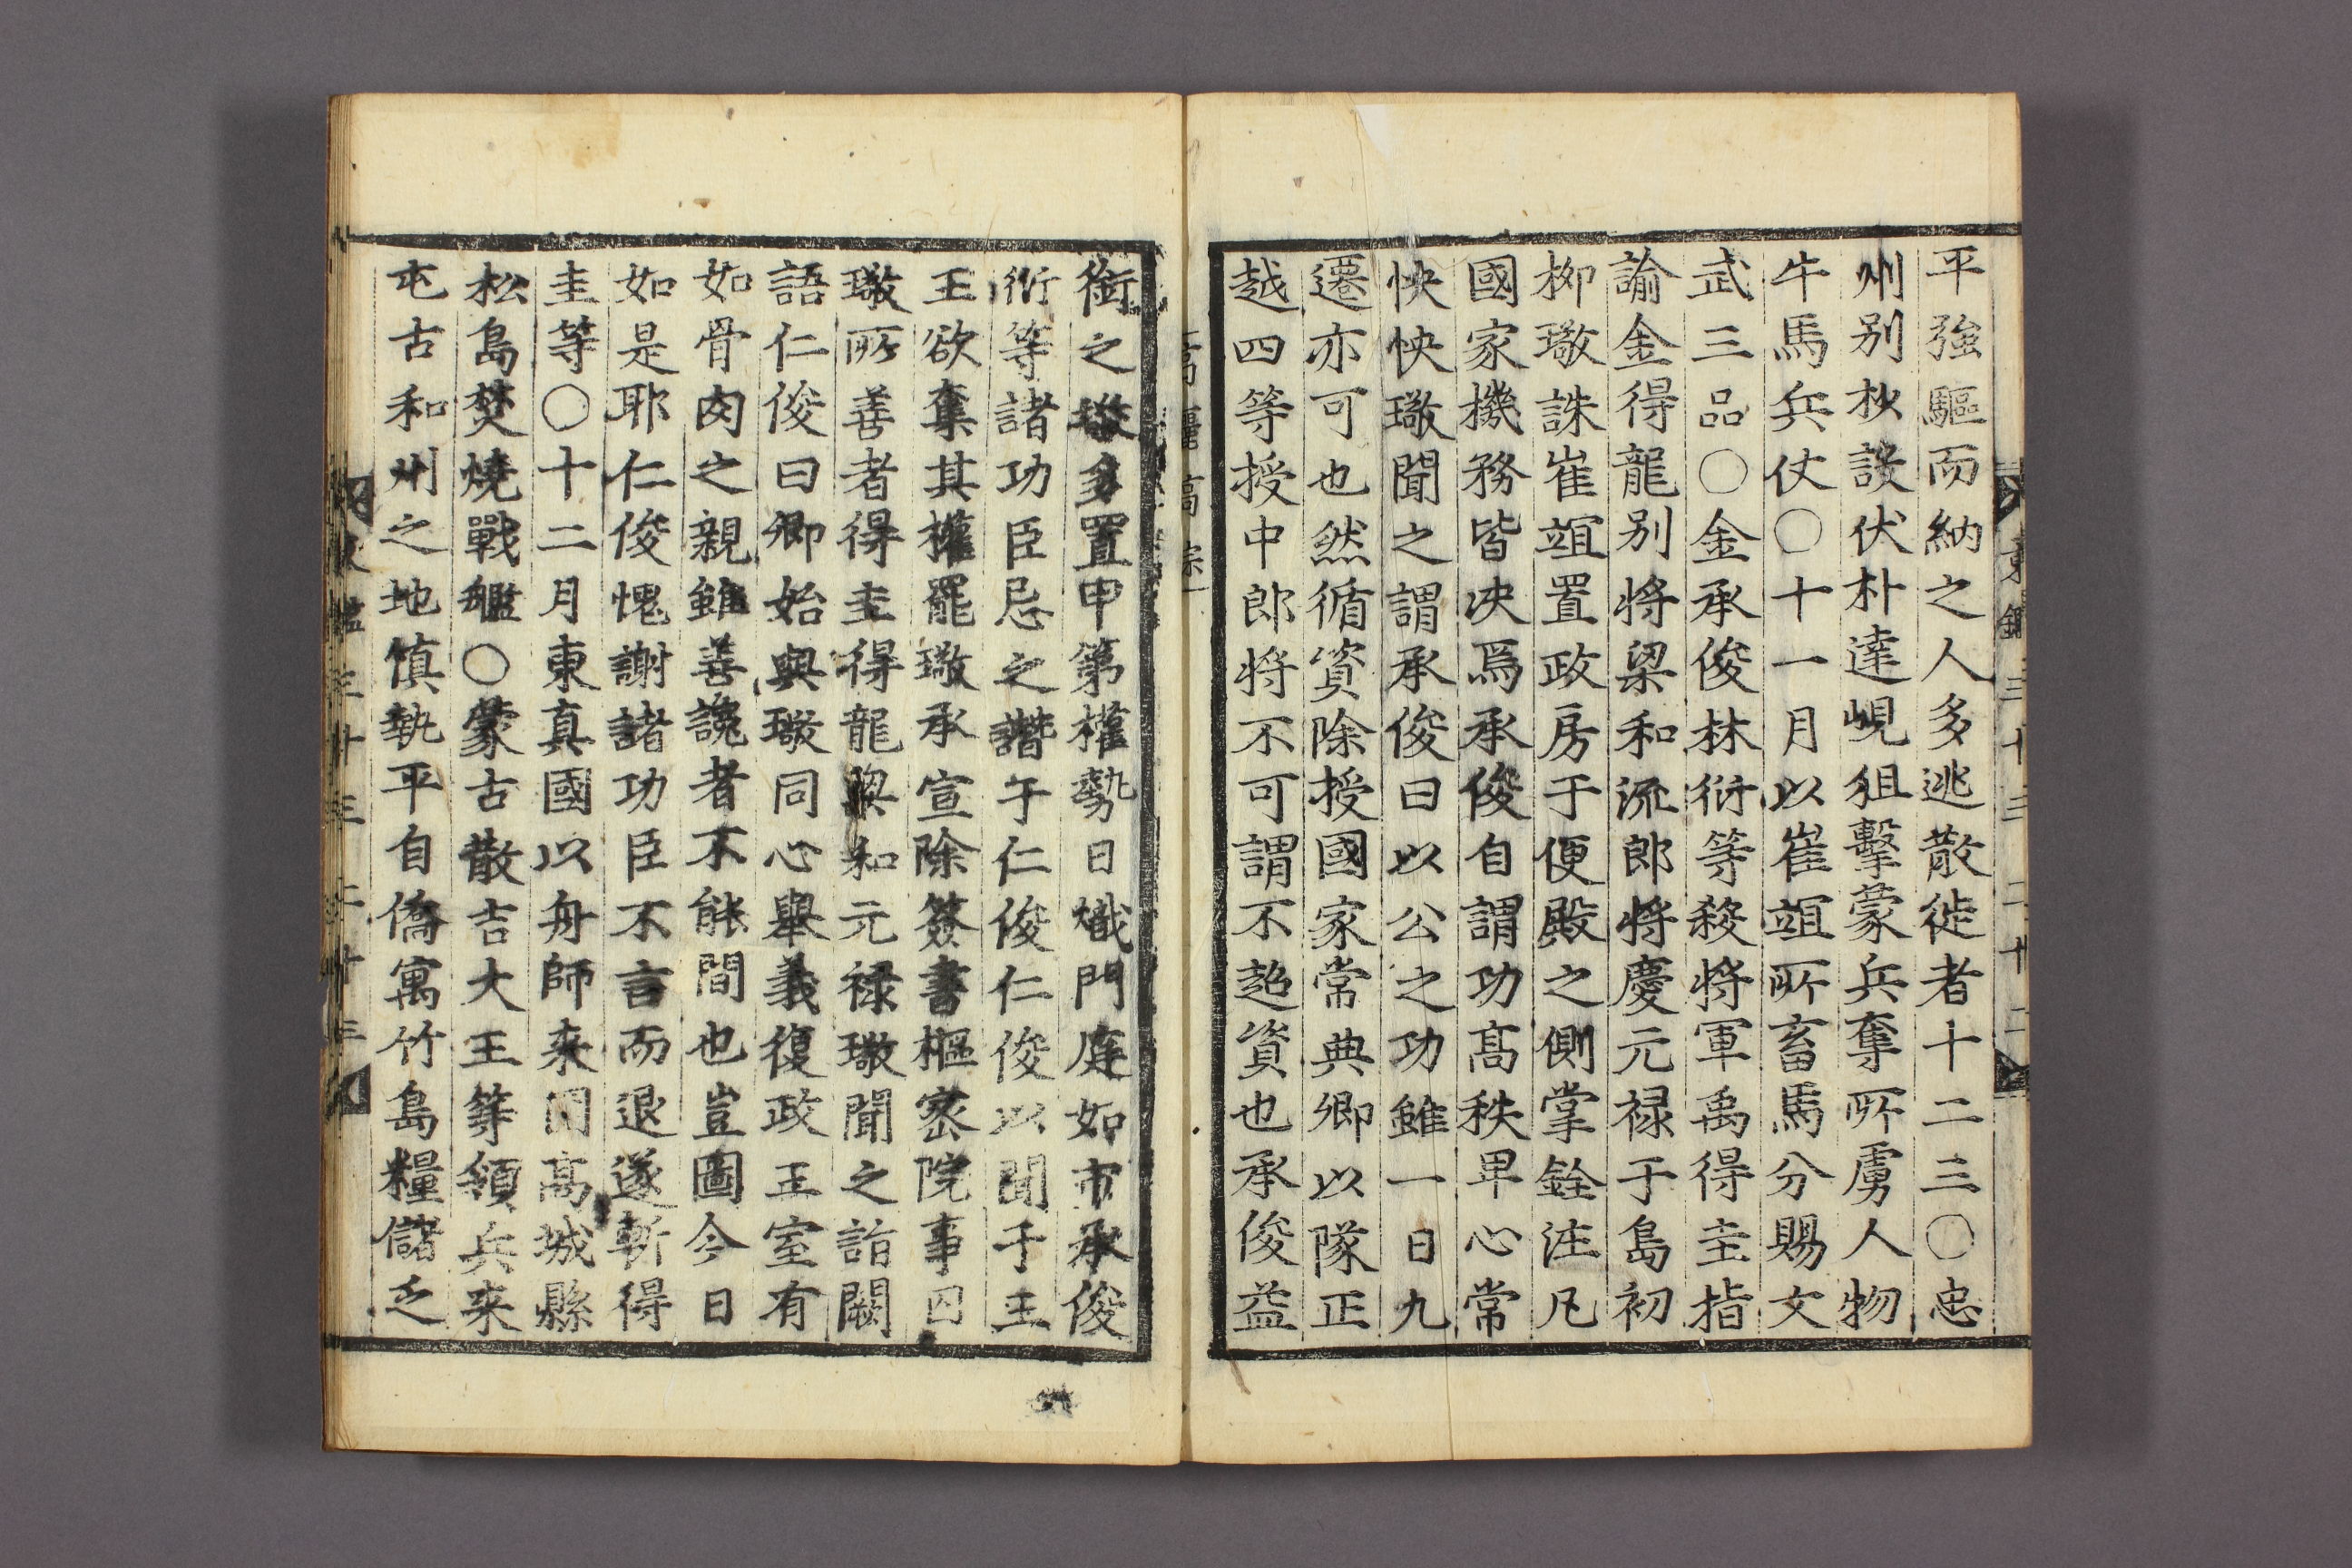 平強驅而納之人多逃散徙者十二三〇忠
州别抄設伏朴達峴狙擊蒙兵奪所虜人物
牛馬兵仗〇十一月以崔竩所畜馬分賜文
武三品〇金承俊林衍等殺將軍禹得圭指
諭金得龍别將梁和流郎將慶元禄于島初
柳璥誅崔竩置政房于便殿之側掌銓注凡
國家機務皆决焉承俊自謂功髙秩卑心常
怏怏璥聞之謂承俊曰以公之功雖一日九
遷亦可也然循資除授國家常典卿以隊正
越四等授中郎将不可謂不超資也承俊益
銜之璥多置甲第權勢日熾門庭如市承俊
衍等諸功臣忌之譖于仁俊仁俊以聞于王
王欲奪其權罷璥承宣除簽書樞密院事囚
璥所善者得圭得龍梁和元禄璥聞之詣闕
語仁俊曰卿始與璥同心舉義復政王室有
如骨肉之親雖善讒者不能間也豈圖今日
如是耶仁俊愧謝諸功臣不言而退遂斬得
圭等〇十二月東真國以舟師来圍髙城縣
松島焚燒戰艦〇蒙古散吉大王等領兵来
屯古和州之地慎執平自僑寓竹島糧儲乏